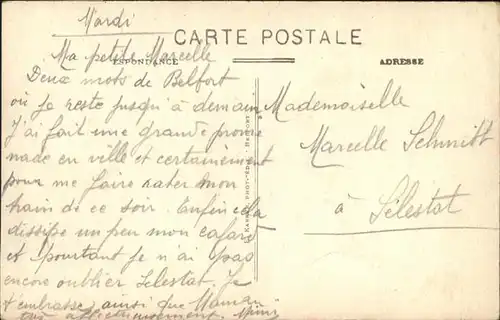 Mardi
CARTE POSTALE
ESPONDANCE
ADRESSE
Ma petite Marcelle
Deux mots de Belfort
où je reste jusqu'à demain
J'ai fait une grande prome
nade en ville et certainement
pour me faire rater mon
train de ce soir. Enfin cela
dissipe un peu mon cafard
et pourtant je n'ai pas
encore oublier Sélestat. Je
t'embrasse ainsi que Maman
affectueusement. Mimi
Mademoiselle
Marcelle Schmitt
à Sélestat